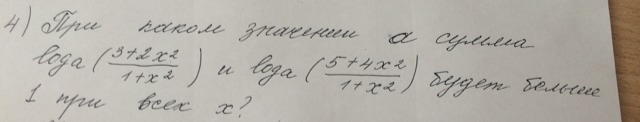 4) При каком значении а сумма
loga (3+2x²/1+x²) и loga (5+4x²/1+x²) будет больше
1 при всех x?